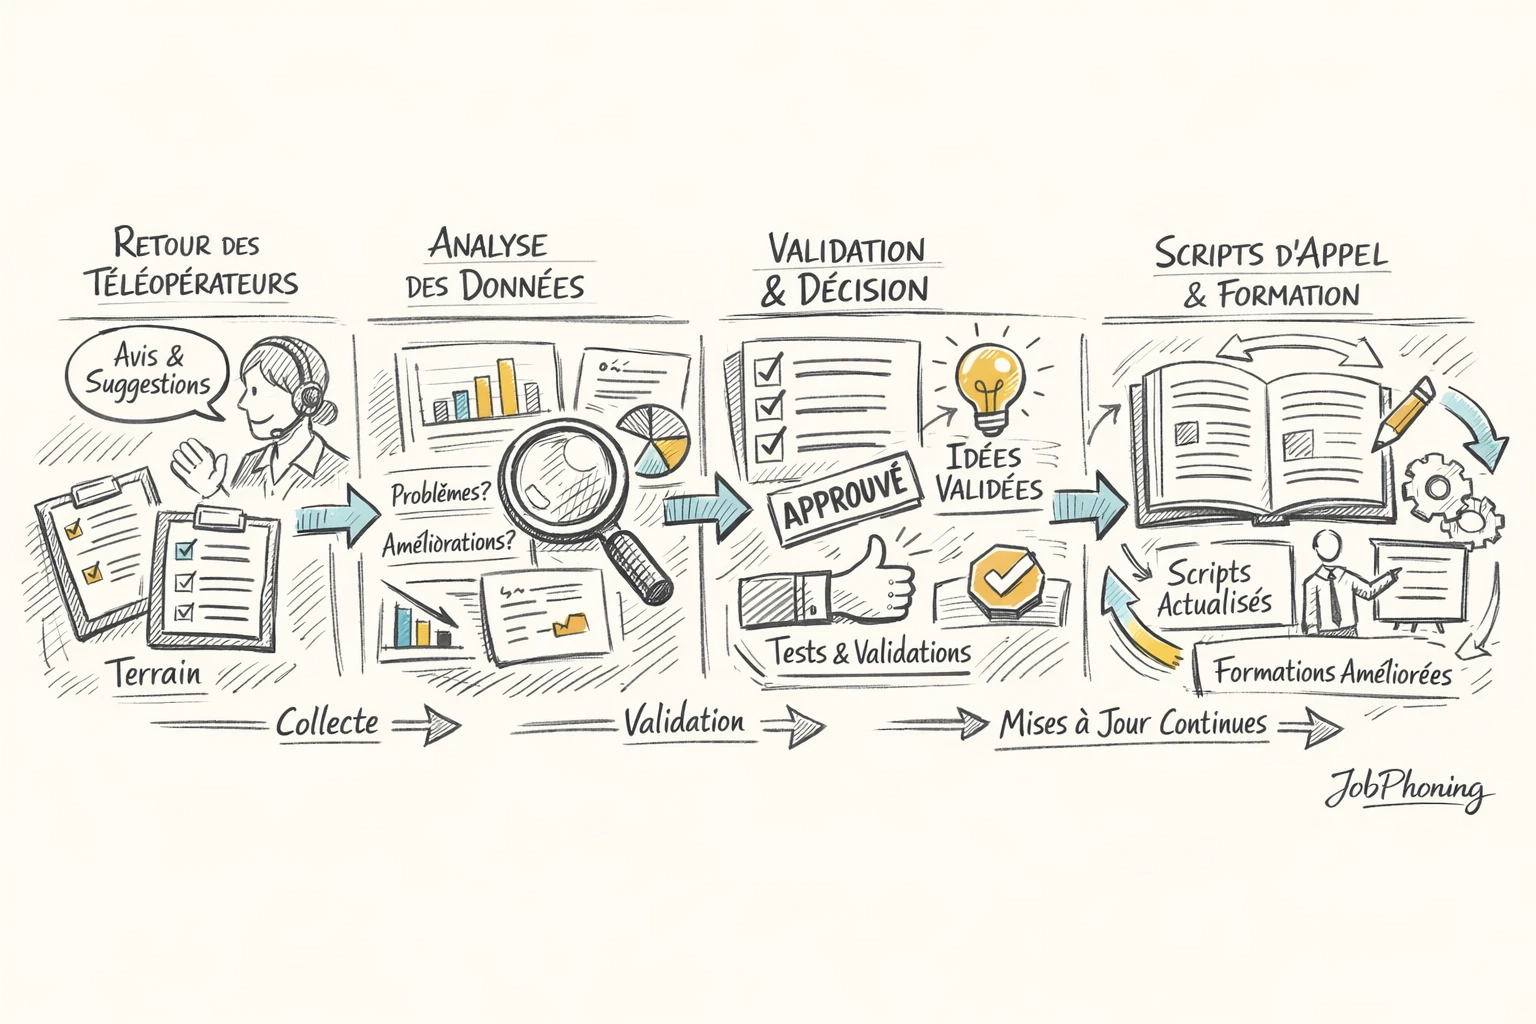 RETOUR DES
TÉLÉOPÉRATEURS
Avis &
Suggestions
Terrain
ANALYSE
DES DONNÉES
Problěmes?
Améliorations?
VALIDATION
& DÉCISION
APPROUVÉ
IDÉES
VALIDÉES
Tests & Validations
SCRIPTS D'APPEL
& FORMATION
Scripts
Actualisés
Formations Améliorées
Collecte
Validation
Mises à Jour Continues
JobPhoning